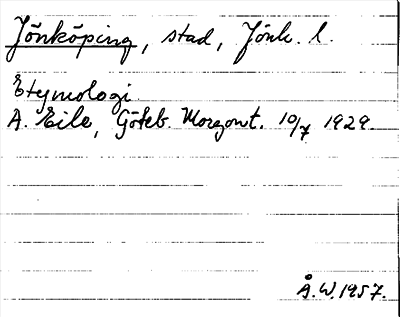 Jönköping, stad, Jönk. l.
Etymologi
A. Eile, Göteb. Morgont. 10/7 1929.
Å.W. 1957.